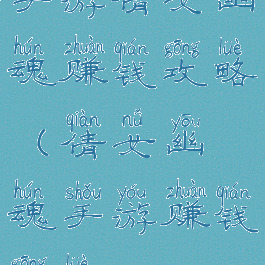 手游倩女幽
hún zhuàn qián gōng lüè
魂赚钱攻略
qiàn nǚ yōu
(倩女幽
hún shǒu yóu zhuàn qián
魂手游赚钱
gōng lüè